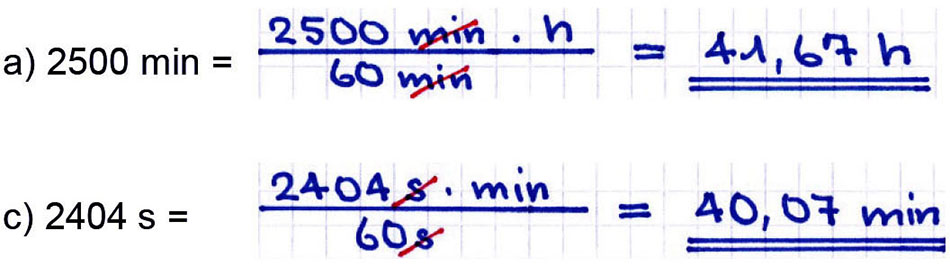 a) 2500 min = 2500 min · h / 60 min = 41,67 h
c) 2404 s = 2404 s · min / 60 s = 40,07 min